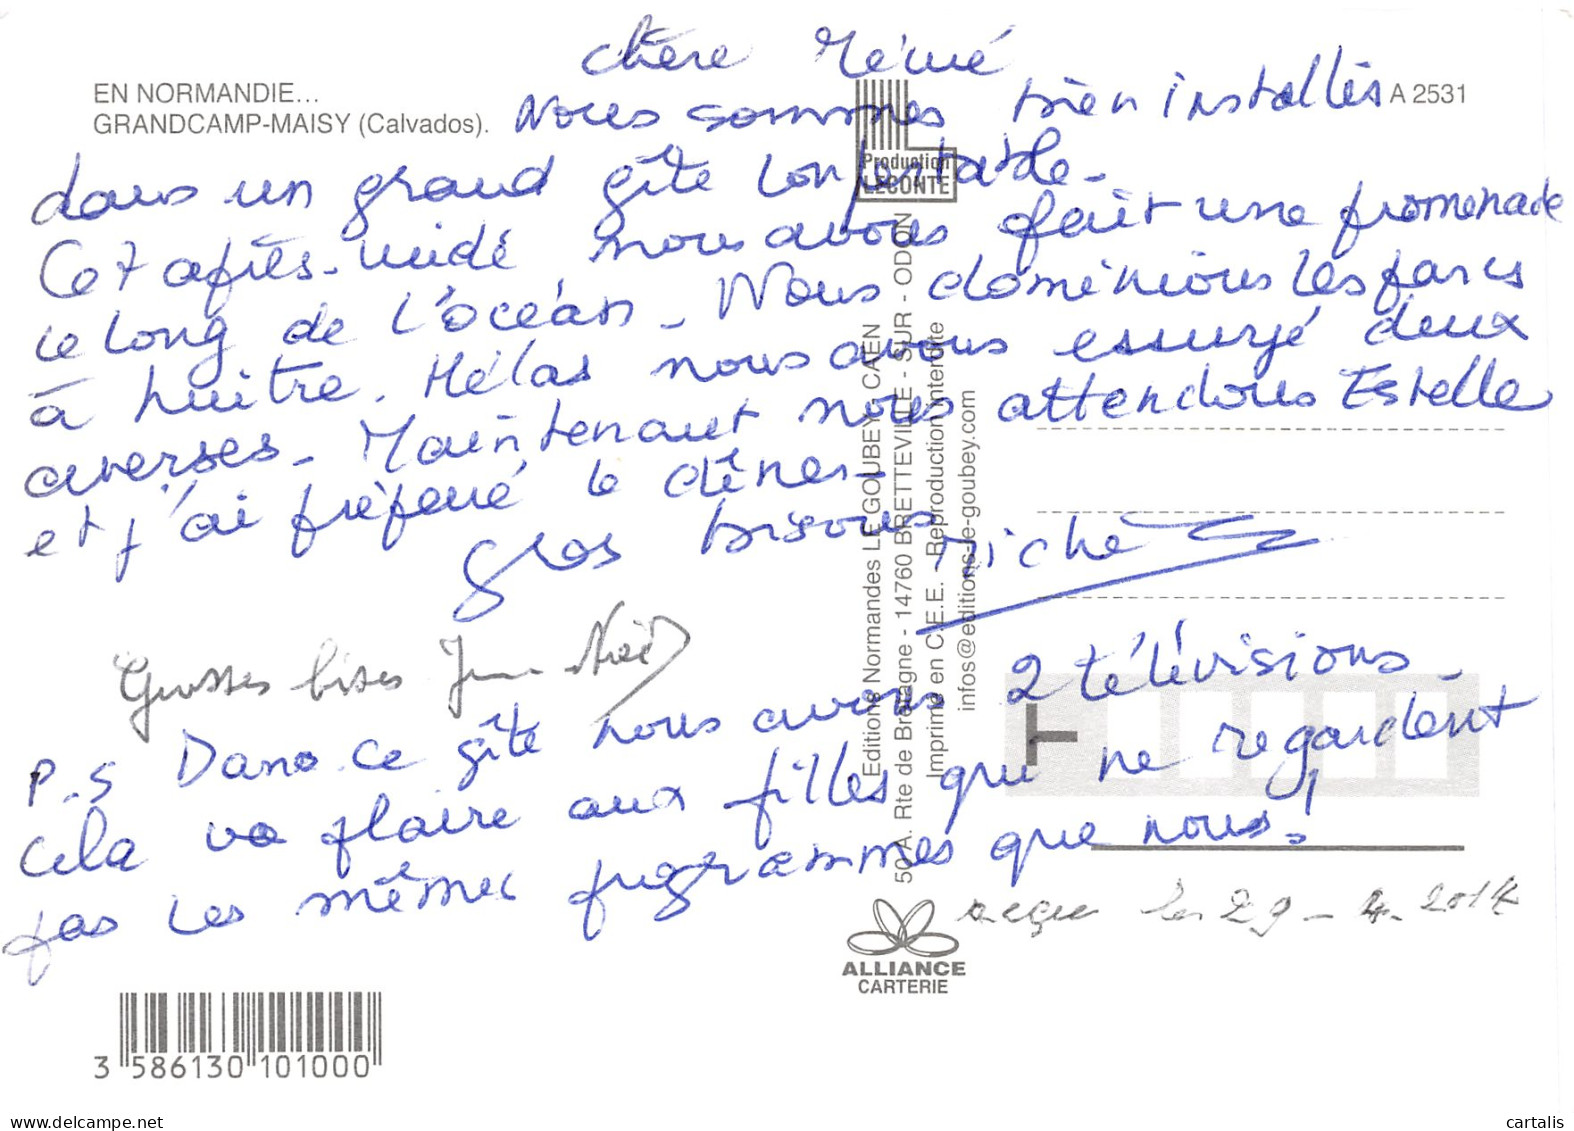 EN NORMANDIE...
GRANDCAMP-MAISY (Calvados).
A 2531
Chère Mémé
Nous sommes bien installés
dans un grand gîte confortable.
Cet après-midi nous avons fait une promenade
le long de l'océan. Nous dominions les parcs
à huitre. Hélas nous avons essuyé deux
averses. Maintenant nous attendons Estelle
et j'ai préparé le dîner.
Gros bisous Miché
Grosses bises Jean Noël
P.S Dans ce gîte nous avons 2 télévisions.
Cela va plaire aux filles qui ne regardent
pas les mêmes programmes que nous!
reçue le 29-4-2014
Production
LECONTE
Editions Normandes LE GOUBEY CAEN
50 A. Rte de Bretagne - 14760 BRETTEVILLE - SUR - ODON
Imprimé en C.E.E. - Reproduction interdite
infos@editions-le-goubey.com
ALLIANCE
CARTERIE
3 586130 101000
www.delcampe.net
cartalis